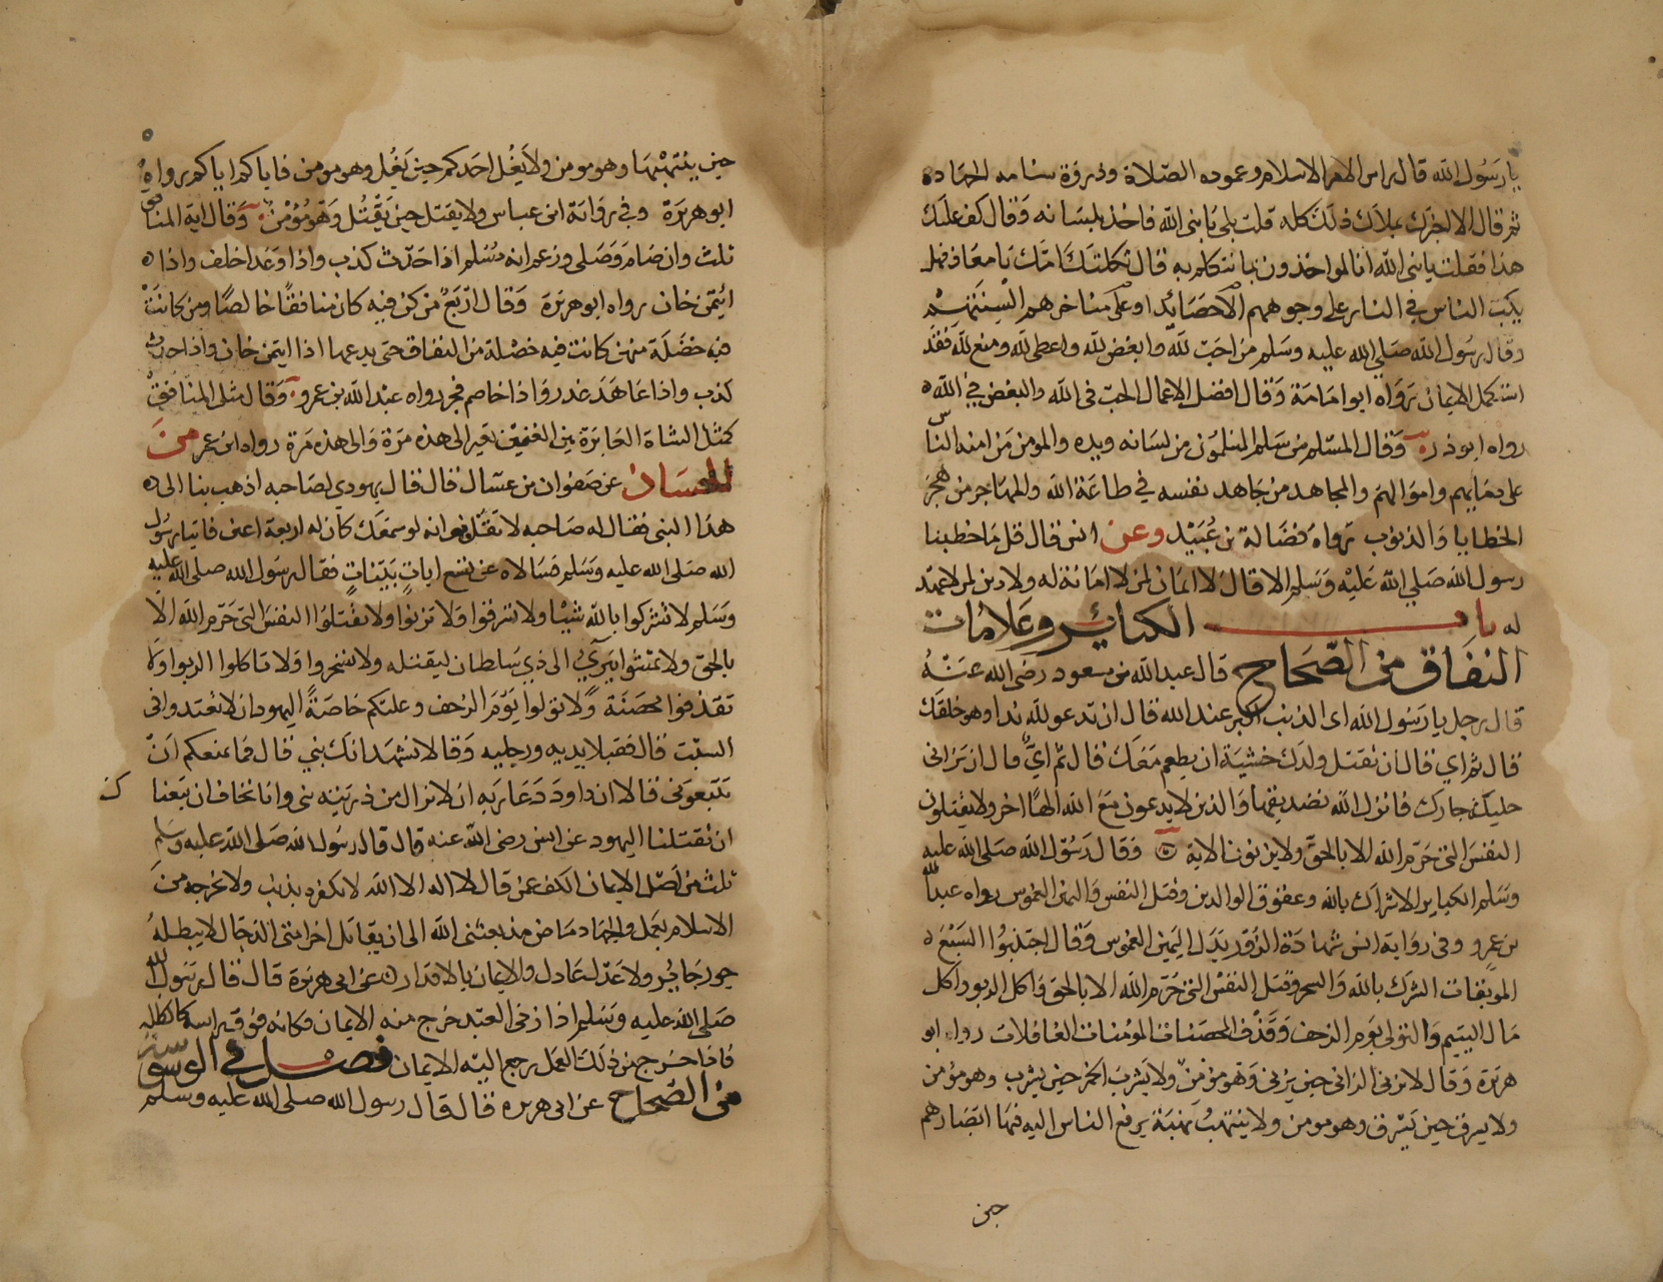 يا رسول الله قال راس الامر الاسلام وعموده الصلاة وذروة سنامه الجهاد
ثم قال الا اخبرك بملاك ذلك كله قلت بلى يا نبي الله فاخذ بلسانه وقال كف عليك
هذا فقلت يا نبي الله انا لمواخذون بما نتكلم به قال ثكلتك امك يا معاذ وهل
يكب الناس في النار على وجوههم الا حصائد او على مناخرهم السنتهم
وقال رسول الله صلى الله عليه وسلم من احب لله وابغض لله واعطى لله ومنع لله فقد
استكمل الايمان رواه ابو امامة وقال افضل الاعمال الحب في الله والبغض في الله
رواه ابو ذر وقال المسلم من سلم المسلمون من لسانه ويده والمومن من امنه الناس
على دمايهم واموالهم والمجاهد من جاهد نفسه في طاعة الله والمهاجر من هجر
الخطايا والذنوب رواه فضالة بن عُبَيْد وعن انس قال قل ما خطبنا
رسول الله صلى الله عليه وسلم الا قال لا ايمان لمن لا امانة له ولا دين لمن لا عهد
له باب الكبائر وعلامات
النفاق من الصحاح قال عبد الله بن مسعود رضي الله عنه
قال رجل يا رسول الله اي الذنب اكبر عند الله قال ان تدعو لله ندا وهو خلقك
قال ثم اي قال ان تقتل ولدك خشية ان يطعم معك قال ثم اي قال ان تزاني
حليلة جارك فانزل الله تصديقها والذين لا يدعون مع الله الها اخر ولا يقتلون
النفس التي حرم الله الا بالحق ولا يزنون الاية وقال رسول الله صلى الله عليه
وسلم الكباير الاشراك بالله وعقوق الوالدين وقتل النفس واليمين الغموس رواه عبد الله
بن عمرو وفي رواية انس شهادة الزور بدل اليمين الغموس وقال اجتنبوا السبع
الموبقات الشرك بالله والسحر وقتل النفس التي حرم الله الا بالحق واكل الربو واكل
مال اليتيم والتولي يوم الزحف وقذف المحصنات المومنات الغافلات رواه ابو
هريرة وقال لا يزني الزاني حين يزني وهو مومن ولا يشرب الخمر حين يشرب وهو مومن
ولا يسرق حين يسرق وهو مومن ولا ينتهب نهبة يرفع الناس اليه فيها ابصارهم
حين
حين ينتهبها وهو مومن ولا يغل احدكم حين يغل وهو مومن فاياكم اياكم رواه
ابو هريرة وفي رواية ابن عباس ولا يقتل حين يقتل وهو مؤمن وقال اية المنافق
ثلث وان صام وصلى وزعم انه مسلم اذا حدث كذب واذا وعد اخلف واذا
ائتمن خان رواه ابو هريرة وقال اربع من كن فيه كان منافقا خالصا ومن كانت
فيه خصلة منهن كانت فيه خصلة من النفاق حتى يدعها اذا ايتمن خان واذا حدث
كذب واذا عاهد غدر واذا خاصم فجر رواه عبد الله بن عمرو وقال مثل المنافق
كمثل الشاة العايرة بين الغنمين تعير الى هذه مرة والى هذه مرة رواه ابن عمر من
الحسان عن صفوان بن عسال قال قال يهودي لصاحبه اذهب بنا الى
هذا النبي فقال له صاحبه لا تقل نبي انه لو سمعك كان له اربعة اعين فاتيا رسول
الله صلى الله عليه وسلم فسالاه عن تسع ايات بينات فقال رسول الله صلى الله عليه
وسلم لا تشركوا بالله شيئا ولا تسرقوا ولا تزنوا ولا تقتلوا النفس التي حرم الله الا
بالحق ولا تمشوا ببري الى ذي سلطان ليقتله ولا تسحروا ولا تاكلوا الربوا ولا
تقذفوا محصنة ولا تولوا يوم الزحف وعليكم خاصة اليهود ان لا تعتدوا في
السبت قال فقبلا يديه ورجليه وقالا نشهد انك نبي قال فما يمنعكم ان
تتبعوني قالا ان داود دعا ربه ان لا يزال من ذريته نبي وانا نخاف ان تبعنا
ان تقتلنا اليهود عن انس رضي الله عنه قال قال رسول الله صلى الله عليه وسلم
ثلث من اصل الايمان الكف عن قال لا اله الا الله لا تكفره بذنب ولا تخرجه من
الاسلام بعمل والجهاد ماض مذ بعثني الله الى ان يقاتل اخر امتي الدجال لا يبطله
جور جاير ولا عدل عادل والايمان بالاقدار عن ابي هريرة قال قال رسول الله
صلى الله عليه وسلم اذا زنى العبد خرج منه الايمان فكانه فوق راسه كالظلة
فاذا خرج من ذلك العمل رجع اليه الايمان فصل في الوسوسة
من الصحاح عن ابي هريرة قال قال رسول الله صلى الله عليه وسلم